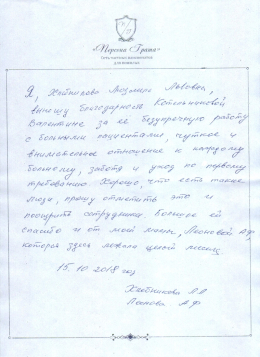 «Персона Грата»
Я, Хлебникова Людмила Львовна,
выношу благодарность Котельниковой
Валентине за ее безупречную работу
с больными пациентами чуткое и
внимательное отношение к каждому
больному, забота и уход по первому
требованию Хорошо, что есть такие
люди, прошу отметить это и
поощрить сотрудника. Большое ей
спасибо и от моей мамы, Леоновой А.Ф,
которая здесь лежала целый месяц
15. 10 2018 год
Хлебникова Л.Л
Леонова А.Ф